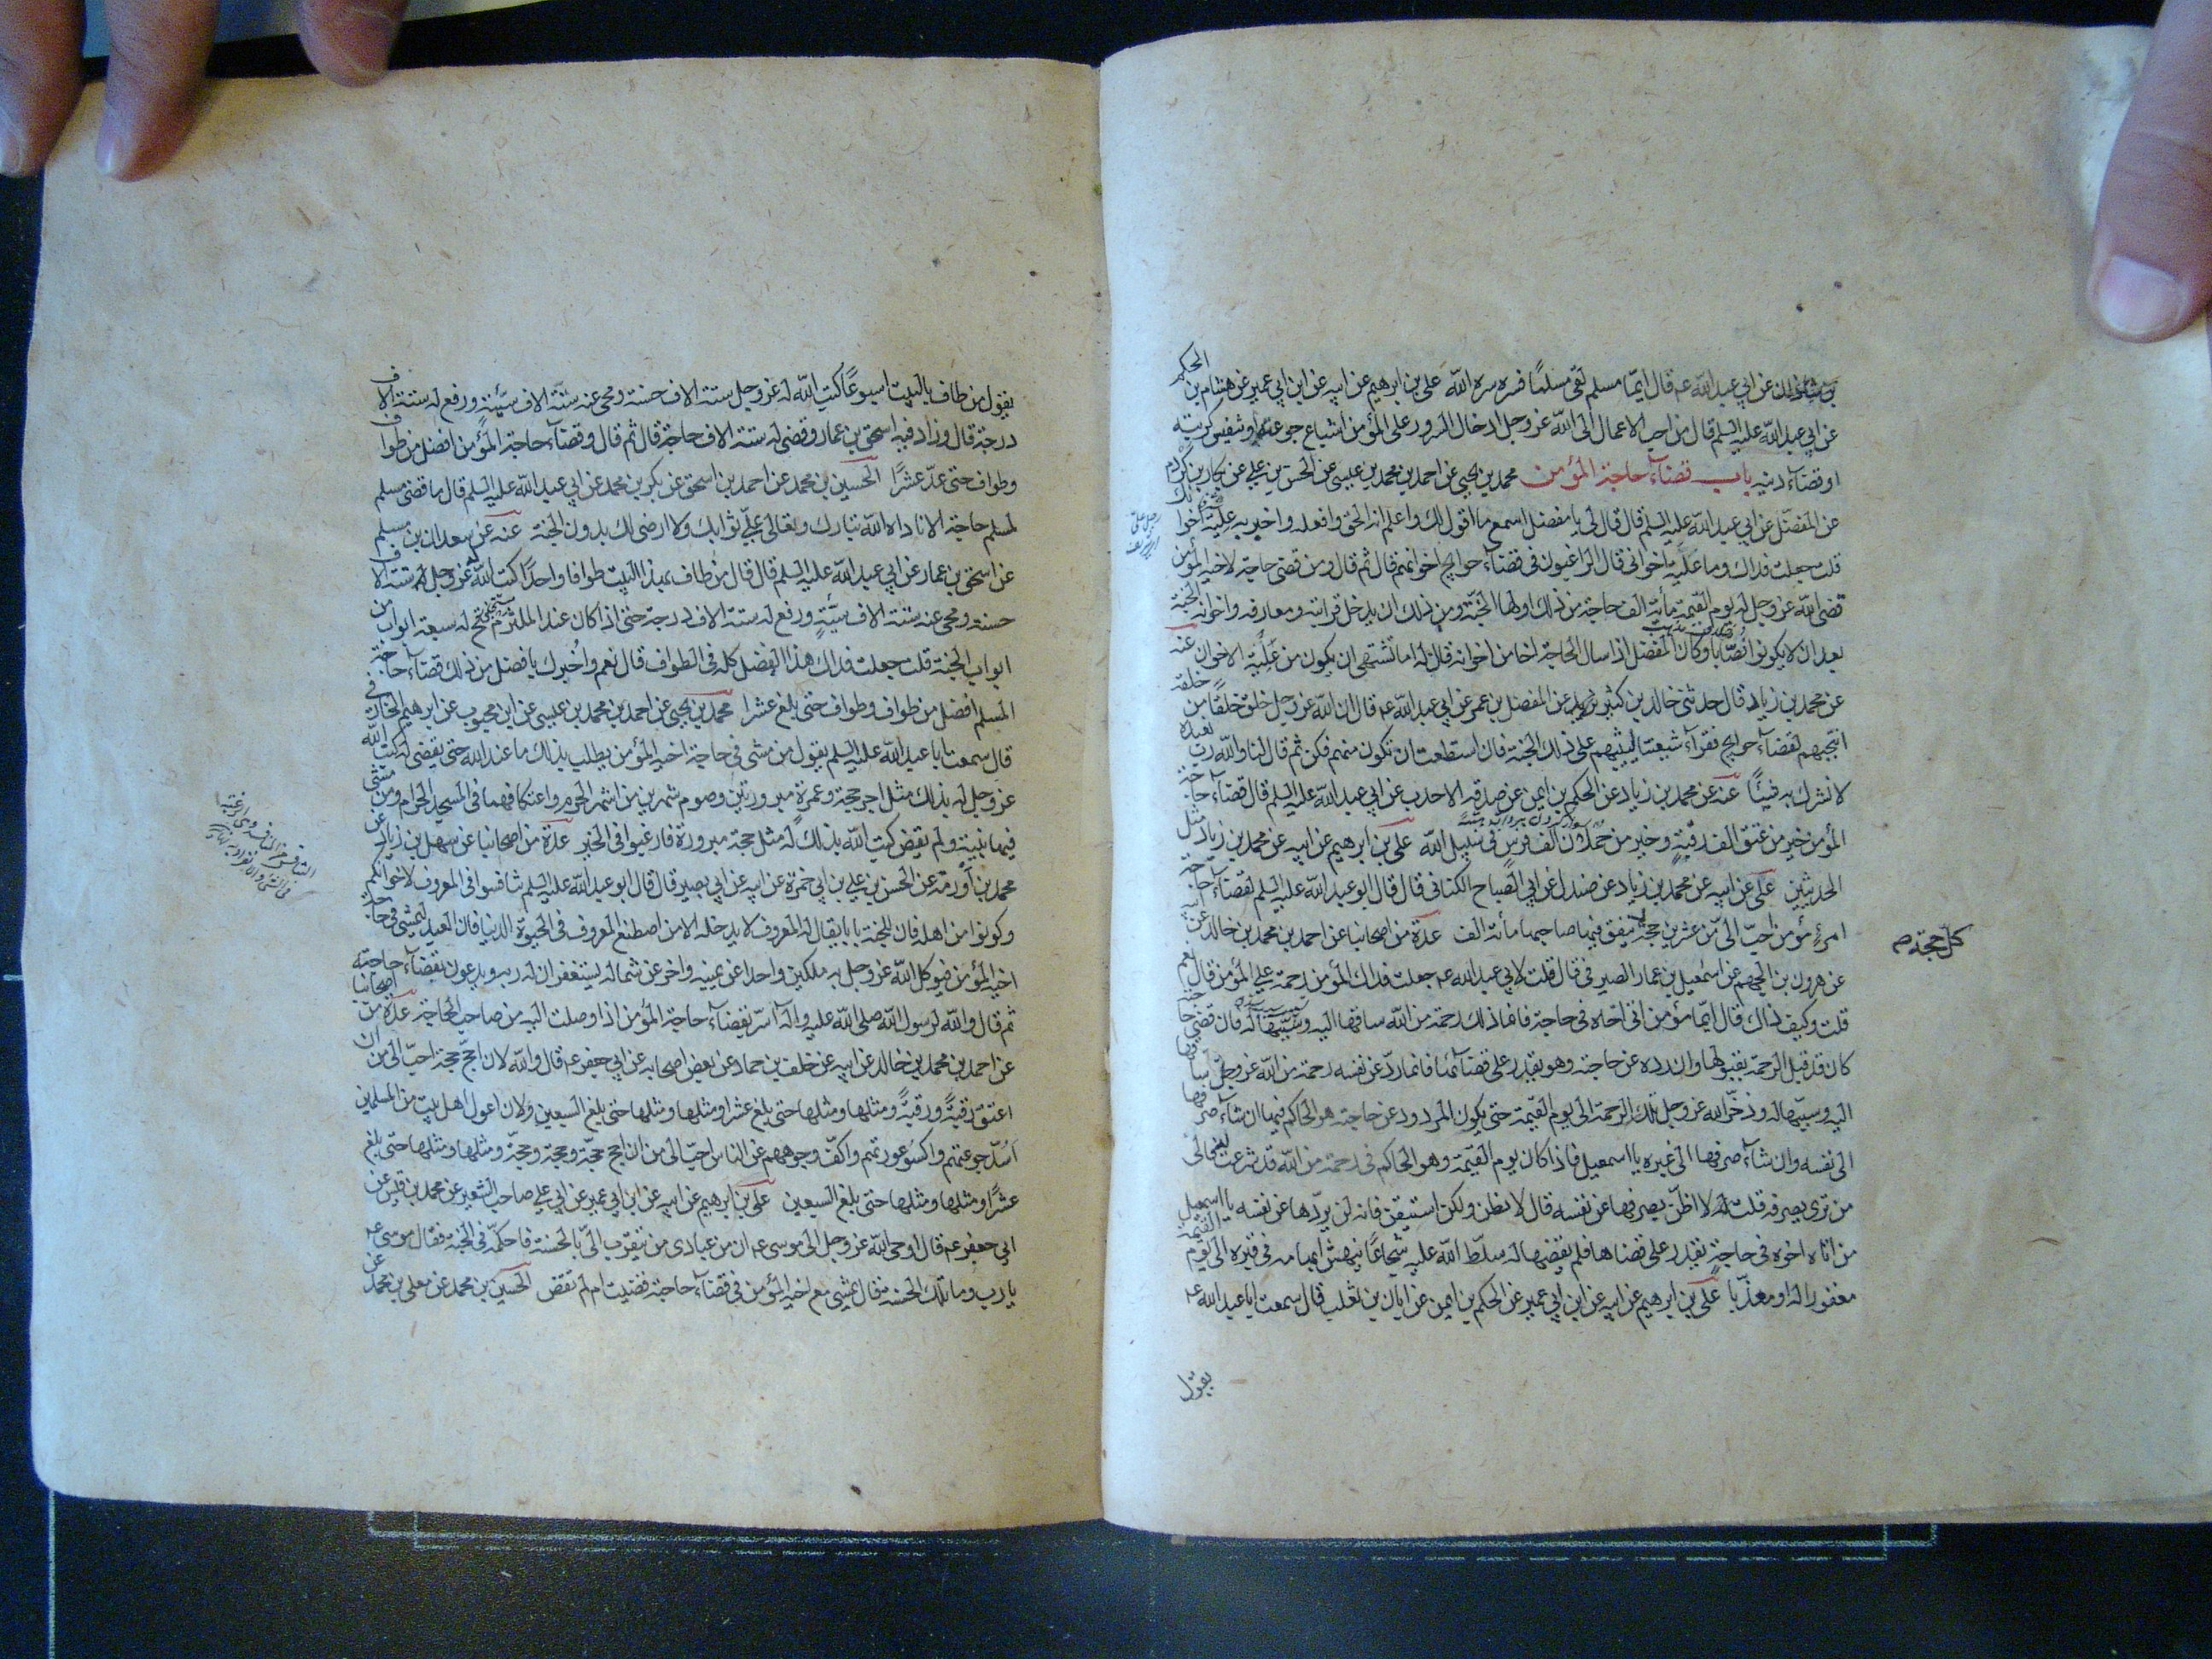 بن سنان عن ابي عبد الله عه قال ايما مسلم لقى مسلما فسره سره الله علي بن ابرهيم عن ابيه عن ابن ابي عمير عن هشام بن الحكم
عن ابي عبد الله عليه السلم قال من احب الاعمال الى الله عز وجل ادخال السرور على المؤمن اشباع جوعته او تنفيس كربته
او قضاء دينه باب قضاء حاجة المؤمن محمد بن يحيى عن احمد بن محمد بن عيسى عن الحسن بن علي عن بكار بن كردم
عن المفضل عن ابي عبد الله عليه السلم قال قال لى يا مفضل اسمع ما اقول لك واعلم انه الحق وافعله واخبر به علية اخوانك
قلت جعلت فداك وما علية اخواني قال الراغبون في قضاء حوايج اخوانهم قال ثم قال ومن قضى حاجة لاخيه المؤمن
قضى الله عز وجل له يوم القيمة مأته الف حاجة من ذلك اولها الجنة ومن ذلك ان يدخل قرابته ومعارفه واخوانه الجنة
بعد ان لا يكونوا نصابا وكان المفضل اذا سال الحاجة اخا من اخوانه قال له اما تشتهي ان يكون من علية الاخوان عنه
عن محمد بن زياد قال حدثنى خالد بن يزيد عن المفضل بن عمر عن ابي عبد الله عه قال ان الله عز وجل خلق خلقا من خلقه
انتجبهم لقضاء حوايج فقراء شيعتنا ليثيبهم على ذلك الجنة فان استطعت ان تكون منهم فكن ثم قال لنا والله رب نعبده
لا نشرك به شيئا عنه عن محمد بن زياد عن الحكم بن ايمن عن صدقه الاحدب عن ابي عبد الله عليه السلم قال قضاء حاجة
المؤمن خير من عتق الف رقبة وخير من حملان الف فرس في سبيل الله علي بن ابرهيم عن ابيه عن محمد بن زياد مثل
الحديثين علي عن ابيه عن محمد بن زياد عن صندل عن ابي الصباح الكناني قال قال ابو عبد الله عليه السلم لقضاء حاجة
امرئ مؤمن احب الى من عشرين حجة ينفق فيها صاحبها مأته الف عدة من اصحابنا عن احمد بن محمد بن خالد عن ابيه
كل حجة صح
عن هرون بن الجهم عن اسمعيل بن عمار الصيرفي قال قلت لابي عبد الله عه جعلت فداك المؤمن رحمة على المؤمن قال نعم
قلت وكيف ذاك قال ايما مؤمن اتى اخاه في حاجة فانما ذلك رحمة من الله ساقها اليه وسببها له فان قضى حاجته
كان قد قبل الرحمة بقبولها وان رده عن حاجته وهو يقدر على قضائها فانما رد عن نفسه رحمة من الله عز وجل ساقها
اليه وسببها له وذخر الله عز وجل تلك الرحمة الى يوم القيمة حتى يكون المردود عن حاجته هو الحاكم فيها ان شاء صرفها
الى نفسه وان شاء صرفها الى غيره يا اسمعيل فاذا كان يوم القيمة وهو الحاكم في رحمة من الله قد شرعت له فالى
من ترى يصرفها قلت لا اظن يصرفها عن نفسه قال لا تظن ولكن استيقن فانه لن يردها عن نفسه يا اسمعيل
من اتاه اخوه في حاجة يقدر على قضاها فلم يقضها له سلط الله عليه شجاعا ينهش ابهامه في قبره الى يوم القيمة
مغفورا له او معذبا علي بن ابرهيم عن ابيه عن ابن ابي عمير عن الحكم بن ايمن عن ابان بن تغلب قال سمعت ابا عبد الله عه
يقول
يقول من طاف بالبيت اسبوعا كتب الله له عز وجل ستة الاف حسنة ومحى عنه ستة الاف سيئة ورفع له ستة الاف
درجة قال وزاد فيه اسحق بن عمار وقضى له ستة الاف حاجة قال ثم قال وقضاء حاجة المؤمن افضل من طواف
وطواف حتى عد عشرا الحسين بن محمد عن احمد بن اسحق عن بكر بن محمد عن ابي عبد الله عليه السلم قال ما قضى مسلم
لمسلم حاجة الا ناداه الله تبارك وتعالى علي ثوابك ولا ارضى لك بدون الجنة عنه عن سعدان بن مسلم
عن اسحق بن عمار عن ابي عبد الله عليه السلم قال قال من طاف بهذا البيت طوافا واحدا كتب الله عز وجل له ستة الاف
حسنة ومحى عنه ستة الاف سيئة ورفع له ستة الاف درجة حتى اذا كان عند الملتزم فتح له سبعة ابواب من
ابواب الجنة قلت جعلت فداك هذا الفضل كله في الطواف قال نعم واخبرك بافضل من ذلك قضاء حاجة
المسلم افضل من طواف وطواف حتى بلغ عشرا محمد بن يحيى عن احمد بن محمد بن عيسى عن ابن محبوب عن ابرهيم الخارقي
قال سمعت ابا عبد الله عليه السلم يقول من مشى في حاجة اخيه المؤمن يطلب بذلك ما عند الله حتى يقضى له كتب الله
عز وجل له بذلك مثل اجر حجة وعمرة مبرورتين وصوم شهرين من اشهر الحرم واعتكافهما في المسجد الحرام ومن مشى
فيها بنية ولم يقض كتب الله بذلك له مثل حجة مبرورة فارغبوا في الخير عدة من اصحابنا عن سهل بن زياد عن
محمد بن اورمة عن الحسن بن علي بن ابي حمزة عن ابيه عن ابي بصير قال قال ابو عبد الله عليه السلم تنافسوا في المعروف لاخوانكم
وكونوا من اهله فان للجنة بابا يقال له المعروف لا يدخله الا من اصطنع المعروف في الحيوة الدنيا فان العبد ليمشى في حاجة
اخيه المؤمن فيوكل الله عز وجل به ملكين واحدا عن يمينه واخر عن شماله يستغفران له ربه ويدعون بقضاء حاجته
ثم قال والله لرسول الله صلى الله عليه واله اسر بقضاء حاجة المؤمن اذا وصلت اليه من صاحب الحاجة عدة من اصحابنا
عن احمد بن محمد بن خالد عن ابيه عن خلف بن حماد عن بعض اصحابه عن ابي جعفر عه قال والله لان احج حجة احب الى من ان
اعتق رقبة ورقبة ومثلها ومثلها حتى بلغ عشرا ومثلها ومثلها حتى بلغ السبعين ولان اعول اهل بيت من المسلمين
اسد جوعتهم واكسو عورتهم واكف وجوههم عن الناس احب الى من ان احج حجة وحجة وحجة ومثلها ومثلها حتى بلغ
عشرا ومثلها ومثلها حتى بلغ السبعين علي بن ابرهيم عن ابيه عن ابن ابي عمير عن ابي علي صاحب الشعير عن محمد بن قيس عن
ابي جعفر عه قال اوحى الله عز وجل الى موسى عه ان من عبادى من يتقرب الى بالحسنة فاحكمه في الجنة فقال موسى عه
يا رب وما تلك الحسنة قال يمشى مع اخيه المؤمن في قضاء حاجته قضيت ام لم تقض الحسين بن محمد عن معلى بن محمد عن